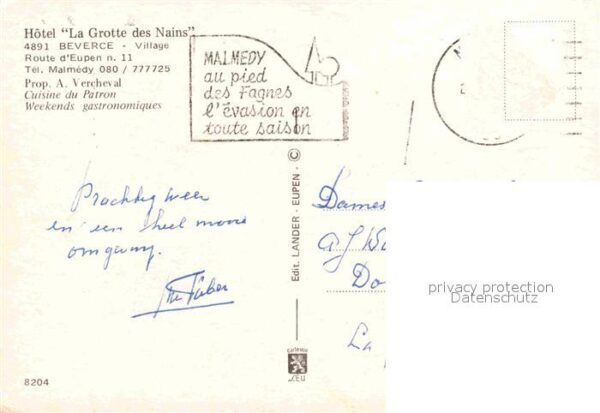 Hôtel "La Grotte des Nains"
4891 BEVERCE - Village
Route d'Eupen n. 11
Tél. Malmédy 080 / 777725
Prop. A. Vercheval
Cuisine du Patron
Weekends gastronomiques
MALMEDY
au pied
des Fagnes
l'évasion en
toute saison
Prachtig weer
en een heel mooie
omgeving.
Edit. LANDER - EUPEN - ©
Dames
La
privacy protection
Datenschutz
8204